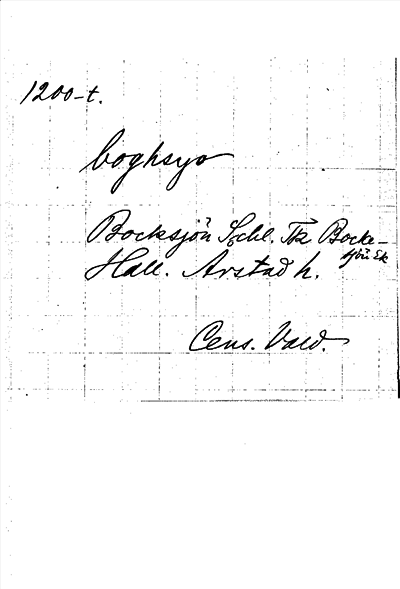 1200-t.
boghsyo
Bocksjön Schl. Tk Bocke-
sjön Ek
Hall. Årstad h.
Cens. Vald.